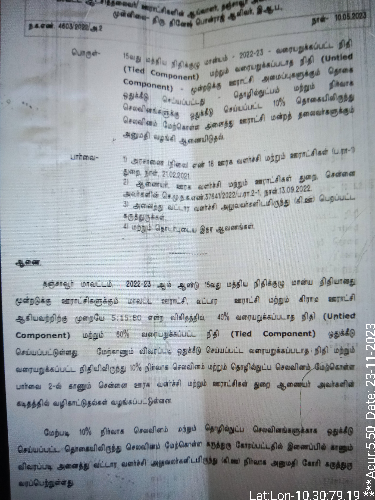 முன்னிலை- திரு தினேஷ் பொன்ராஜ் ஆலிவர், இ.ஆ.ப.,
ந.க.எண். 4603/2022/அ.2 நாள்- 10.05.2023
பொருள்- 15வது மத்திய நிதிக்குழு மான்யம் - 2022-23 - வரையறுக்கப்பட்ட நிதி
(Tied Component) மற்றும் வரையறுக்கப்படாத நிதி (Untied
Component) - மூன்றடுக்கு ஊராட்சி அமைப்புகளுக்கும் தொகை
ஒதுக்கீடு செய்யப்பட்டது தொழில்நுட்பம் மற்றும் நிர்வாக
செலவினங்களுக்கு ஒதுக்கீடு செய்யப்பட்ட 10% தொகையிலிருந்து
செலவினம் மேற்கொள்ள அனைத்து ஊராட்சி மன்றத் தலைவர்களுக்கும்
அனுமதி வழங்கி ஆணையிடுதல்.
பார்வை- 1) அரசாணை (நிலை) எண் ஊரக வளர்ச்சி மற்றும் ஊராட்சிகள்
துறை, நாள். 21.02.2021
2) ஆணையர், ஊரக வளர்ச்சி மற்றும் ஊராட்சிகள் துறை, சென்னை
அவர்களின் நாள்.13.09.2022.
3) அனைத்து வட்டார வளர்ச்சி அலுவலர்களிடமிருந்து (கி.ஊ) பெறப்பட்ட
கருத்துருக்கள்.
4) மற்றும் தொடர்புடைய இதர ஆவணங்கள்.
ஆணை.
தஞ்சாவூர் மாவட்டம், 2022-23 ஆம் ஆண்டு 15வது மத்திய நிதிக்குழு மான்ய நிதியானது
மூன்றடுக்கு ஊராட்சிகளுக்கும் மாவட்ட ஊராட்சி, வட்டார ஊராட்சி மற்றும் கிராம ஊராட்சி
ஆகியவற்றிற்கு முறையே 5:15:80 என்ற விகிதத்தில் 40% வரையறுக்கப்படாத நிதி (Untied
Component) மற்றும் 60% வரையறுக்கப்பட்ட நிதி (Tied Component) ஒதுக்கீடு
செய்யப்பட்டுள்ளது. மேற்காணும் விவரப்படி ஒதுக்கீடு செய்யப்பட்ட வரையறுக்கப்படாத நிதி மற்றும்
வரையறுக்கப்பட்ட நிதியிலிருந்து 10% நிர்வாக செலவினம் மற்றும் தொழில்நுட்ப செலவினம் மேற்கொள்ள
பார்வை 2-ல் காணும் சென்னை ஊரக வளர்ச்சி மற்றும் ஊராட்சிகள் துறை ஆணையர் அவர்களின்
கடிதத்தில் வழிகாட்டுதல்கள் வழங்கப்பட்டுள்ளன.
மேற்படி 10% நிர்வாக செலவினம் மற்றும் தொழில்நுட்ப செலவினங்களுக்காக ஒதுக்கீடு
செய்யப்பட்ட தொகையிலிருந்து செலவினம் மேற்கொள்ள கருத்துரு கோரப்பட்டதில் இணைப்பில் காணும்
விவரப்படி அனைத்து வட்டார வளர்ச்சி அலுவலர்களிடமிருந்து (கி.ஊ) நிர்வாக அனுமதி கோரி கருத்துரு
வரப்பெற்றுள்ளது.
Lat:Lon-10.30:79.19 ***Acur:5.50 Date: 23-11-2023